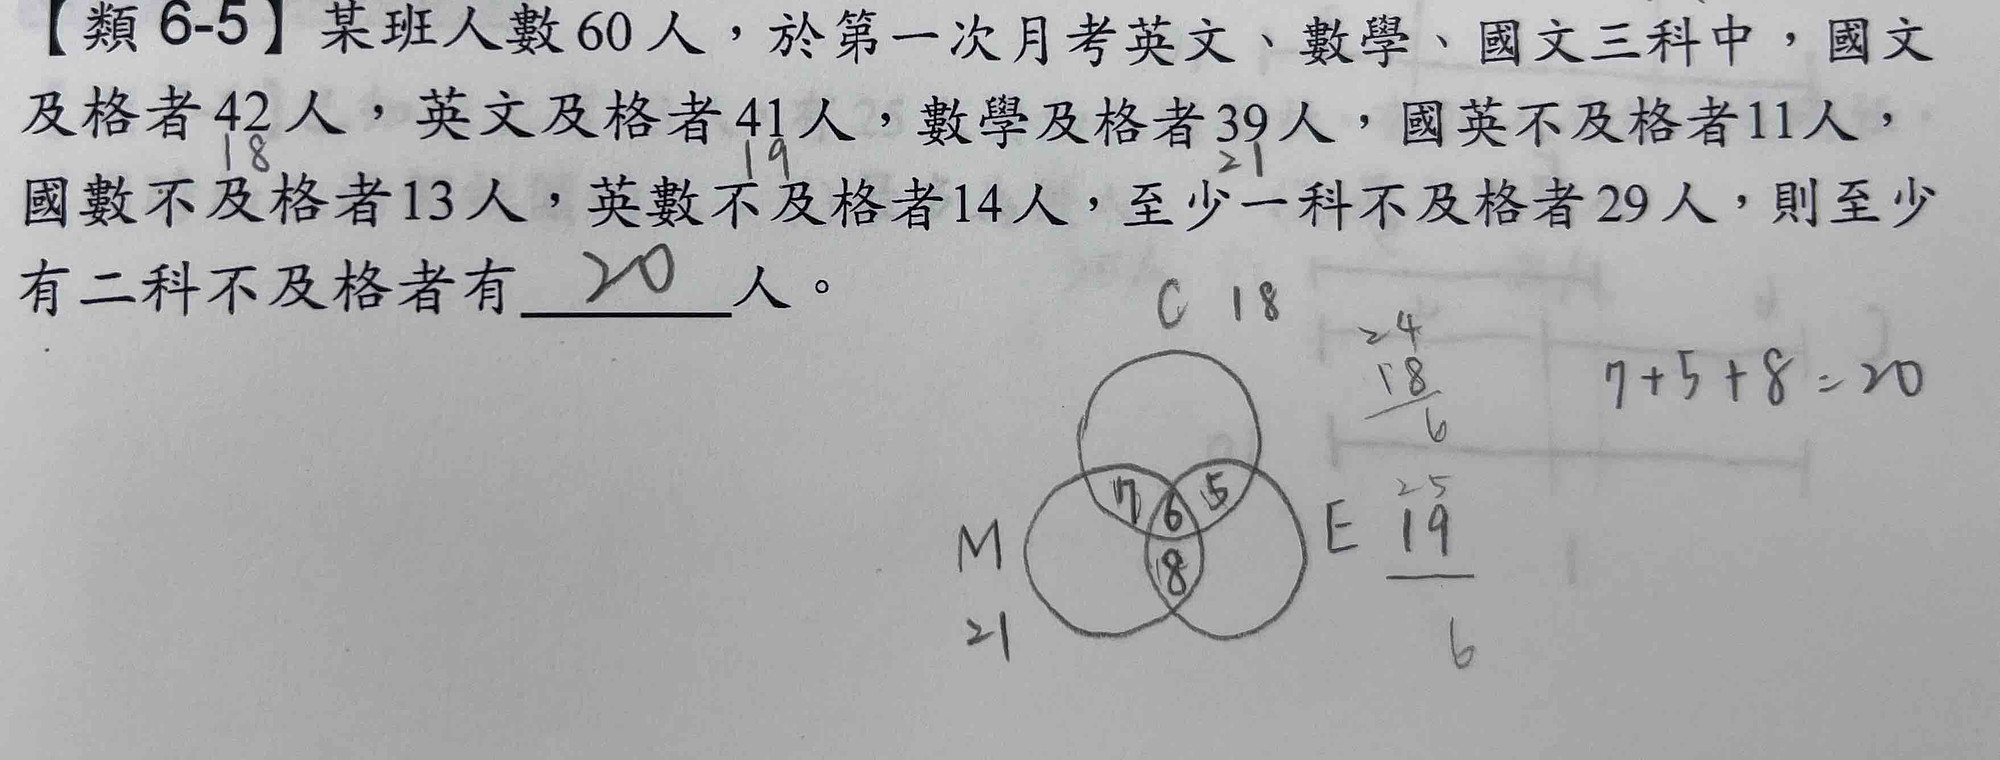 【類 6-5】某班人數60人，於第一次月考英文、數學、國文三科中，國文
及格者42人，英文及格者41人，數學及格者39人，國英不及格者11人，
18 19 21
國數不及格者13人，英數不及格者14人，至少一科不及格者29人，則至少
有二科不及格者有 20 人。
C 18
24
18
6
7+5+8=20
7 6 5
M
21
8
E
25
19
6